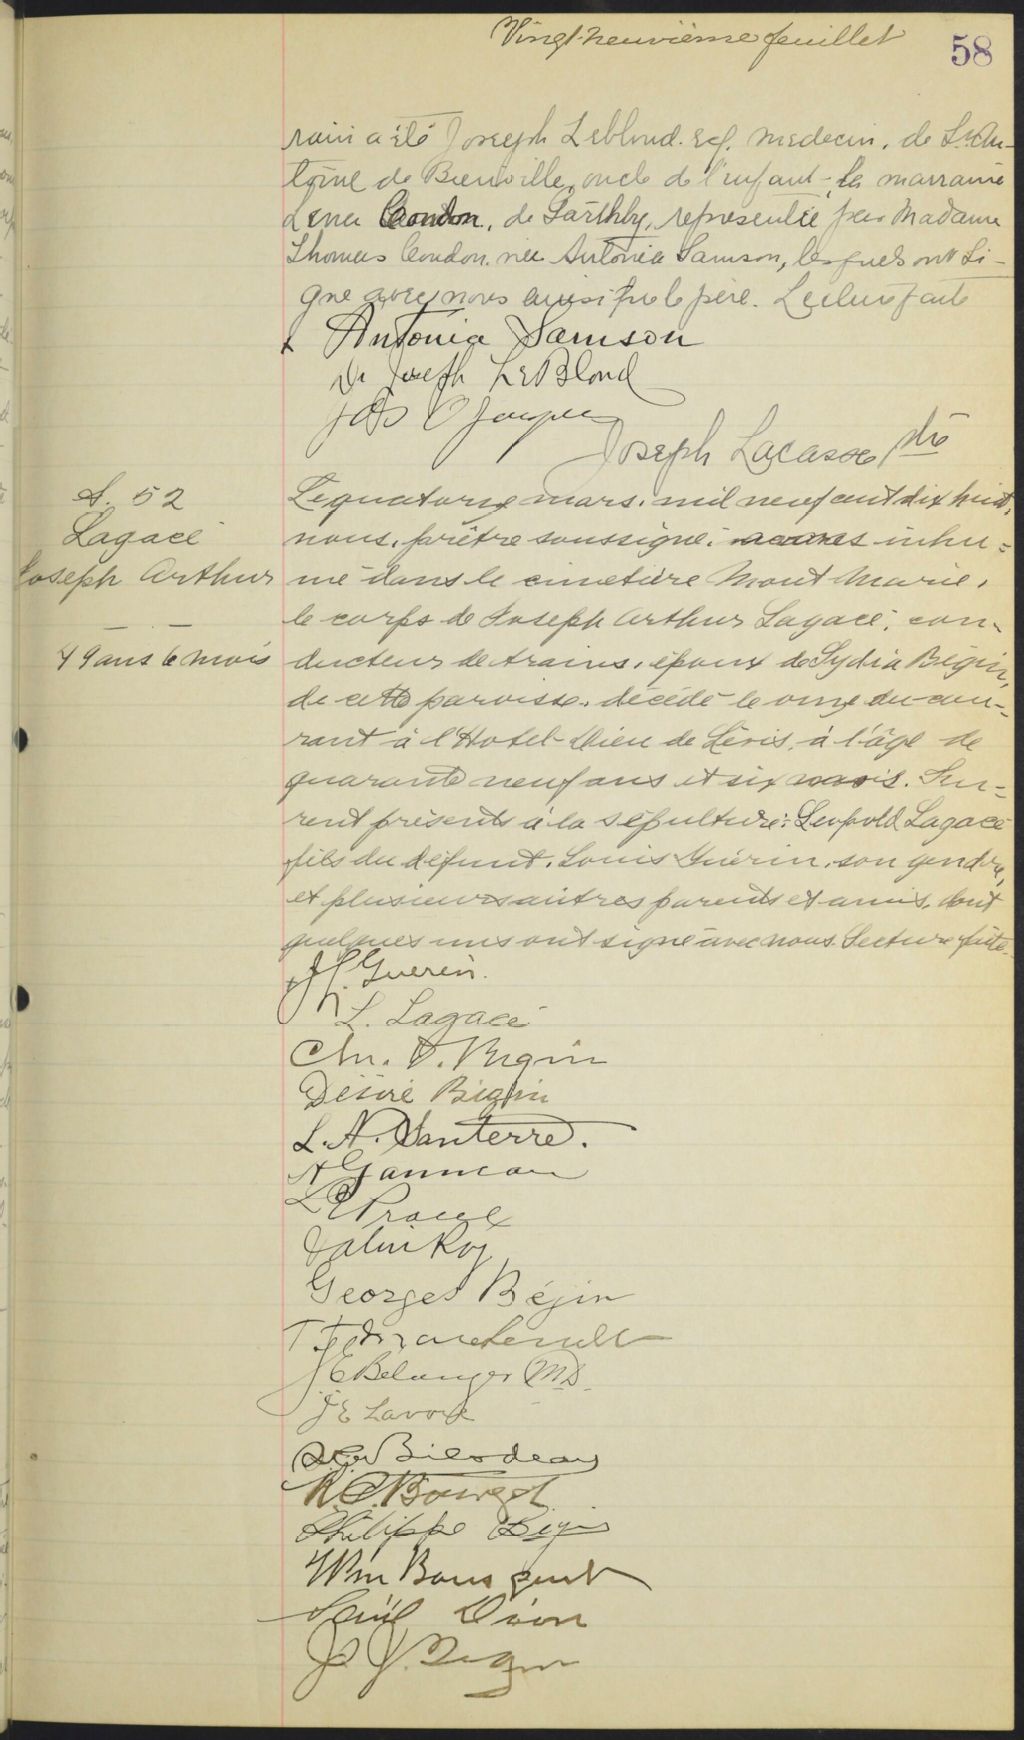 Vingt-neuvième feuillet
58
rain a été Joseph Leblond. Ecr. medecin, de St. An-
toine de Bienville, oncle de l'enfant - la marraine
Lena Condon, de Garthby, representée par Madame
Thomas Condon née Antonia Samson, lesquels ont si-
gné avec nous ainsi que le père. Lecture faite
Antonia Samson
Dr Joseph LeBlond
Joseph Lacasse ptre
S. 52
Lagacé
Joseph Arthur
49 ans 6 mois
Le quatorze mars, mil neuf cent dix huit,
nous, prêtre soussigné, avons inhu=
mé dans le cimetière Mont Marie,
le corps de Joseph Arthur Lagacé, con-
ducteur de trains, époux de Lydia Bégin,
de cette paroisse, décédé le onze du cou-
rant à l'Hotel-Dieu de Lévis, à l'âge de
quarante neuf ans et six mois. Fu-
rent présents à la sépulture: Léopold Lagacé
fils du défunt, Louis Guérin, son gendre,
et plusieurs autres parents et amis, dont
quelques uns ont signé avec nous. Lecture faite.
Guerin.
L. Lagacé
Chs. V. Begin
Désiré Bégin
L. A. Santerre.
Proulx
Roy
Georges Bégin
J E Belanger M.D.
J E Lavoie
Bilodeau
Philippe Begin
Wm Bousquet
Dion
J. Begin